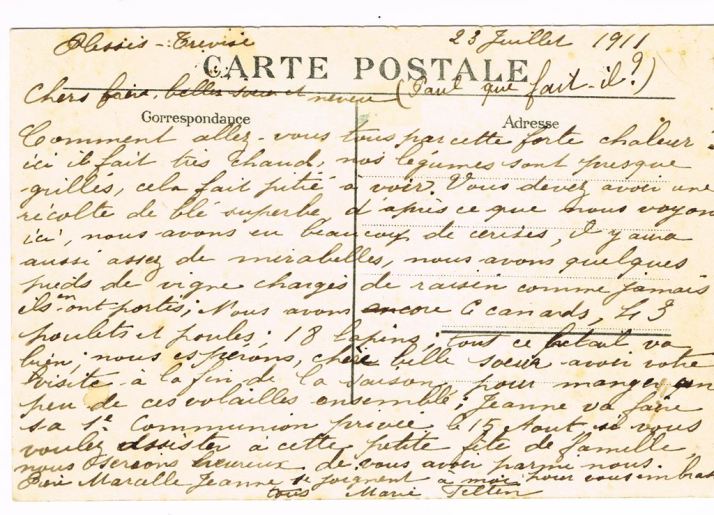 Plessis-Trevise 23 Juillet 1911
CARTE POSTALE
Chers frère, belle soeur et neveu (Paul que fait-il?)
Correspondance Adresse
Comment allez-vous tous par cette forte chaleur ?
ici il fait très chaud, nos légumes sont presque
grillés, cela fait pitié a voir. Vous devez avoir une
récolte de blé superbe d'après ce que nous voyons
ici, nous avons eu beaucoup de cerises, il y aura
aussi assez de mirabelles, nous avons quelques
pieds de vigne chargés de raisin comme jamais
ils n'ont portés; Nous avons encore 6 canards, 43
poulets et poules; 18 lapins; tout ce betail va
bien; nous esperons, chère belle soeur avoir votre
visite à la fin de la saison, pour manger un
peu de ces volailles ensemble; Jeanne va faire
sa 1e Communion privée le 15 Aout si vous
voulez assister à cette petite fête de famille
nous serions heureux de vous avoir parmi nous.
Marcelle Jeanne se joignent a moi pour vous embrasser
tous Marie